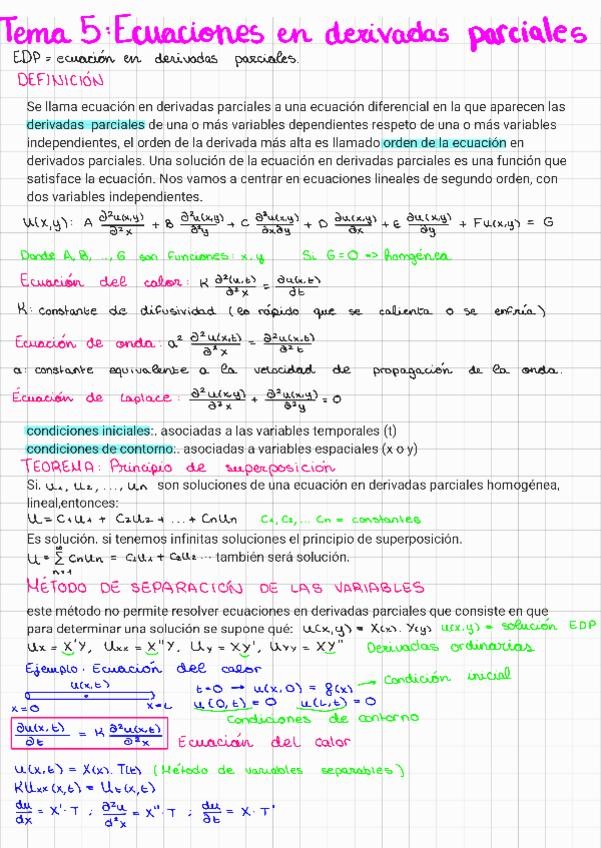 Tema 5: Ecuaciones en derivadas parciales
EDP = ecuación en derivadas parciales.
DEFINICIÓN
Se llama ecuación en derivadas parciales a una ecuación diferencial en la que aparecen las
derivadas parciales de una o más variables dependientes respeto de una o más variables
independientes, el orden de la derivada más alta es llamado orden de la ecuación en
derivados parciales. Una solución de la ecuación en derivadas parciales es una función que
satisface la ecuación. Nos vamos a centrar en ecuaciones lineales de segundo orden, con
dos variables independientes.
u(x,y): A ∂²u(x,y)/∂²x + B ∂²u(x,y)/∂²y + C ∂²u(x,y)/∂x∂y + D ∂u(x,y)/∂x + E ∂u(x,y)/∂y + Fu(x,y) = G
Donde A, B, ..., G son funciones: x, y Si G=0 => homogénea
Ecuación del calor: K ∂²(u,t)/∂²x = ∂u(x,t)/∂t
K: constante de difusividad (lo rápido que se calienta o se enfría)
Ecuación de onda: a² ∂²u(x,t)/∂²x = ∂²u(x,t)/∂²t
a: constante equivalente a la velocidad de propagación de la onda.
Ecuación de Laplace: ∂²u(x,y)/∂²x + ∂²u(x,y)/∂²y = 0
condiciones iniciales:. asociadas a las variables temporales (t)
condiciones de contorno:. asociadas a variables espaciales (x o y)
TEOREMA: Principio de superposición
Si. u₁, u₂, ..., un son soluciones de una ecuación en derivadas parciales homogénea,
lineal,entonces:
u = C₁u₁ + C₂u₂ + ... + Cnun C₁, C₂, ... Cn = constantes
Es solución. si tenemos infinitas soluciones el principio de superposición.
u = ∞∑n=1 Cnun = C₁u₁ + C₂u₂ ... también será solución.
MÉTODO DE SEPARACIÓN DE LAS VARIABLES
este método no permite resolver ecuaciones en derivadas parciales que consiste en que
para determinar una solución se supone qué: u(x,y) = X(x). Y(y) u(x,y) = solución EDP
Ux = X'Y, Uxx = X''Y, Uy = XY', Uyy = XY'' Derivadas ordinarias
Ejemplo: Ecuación del calor
u(x,t)
x=0 x=L
t=0 → u(x,0) = f(x) → Condición inicial
u(0,t) = 0 u(L,t) = 0
Condiciones de contorno
∂u(x,t)/∂t = K ∂²u(x,t)/∂²x Ecuación del calor
u(x,t) = X(x). T(t) (Método de variables separables)
KUxx(x,t) = Ut(x,t)
du/dx = X'·T ; ∂²u/d²x = X''·T ; du/∂t = X·T'